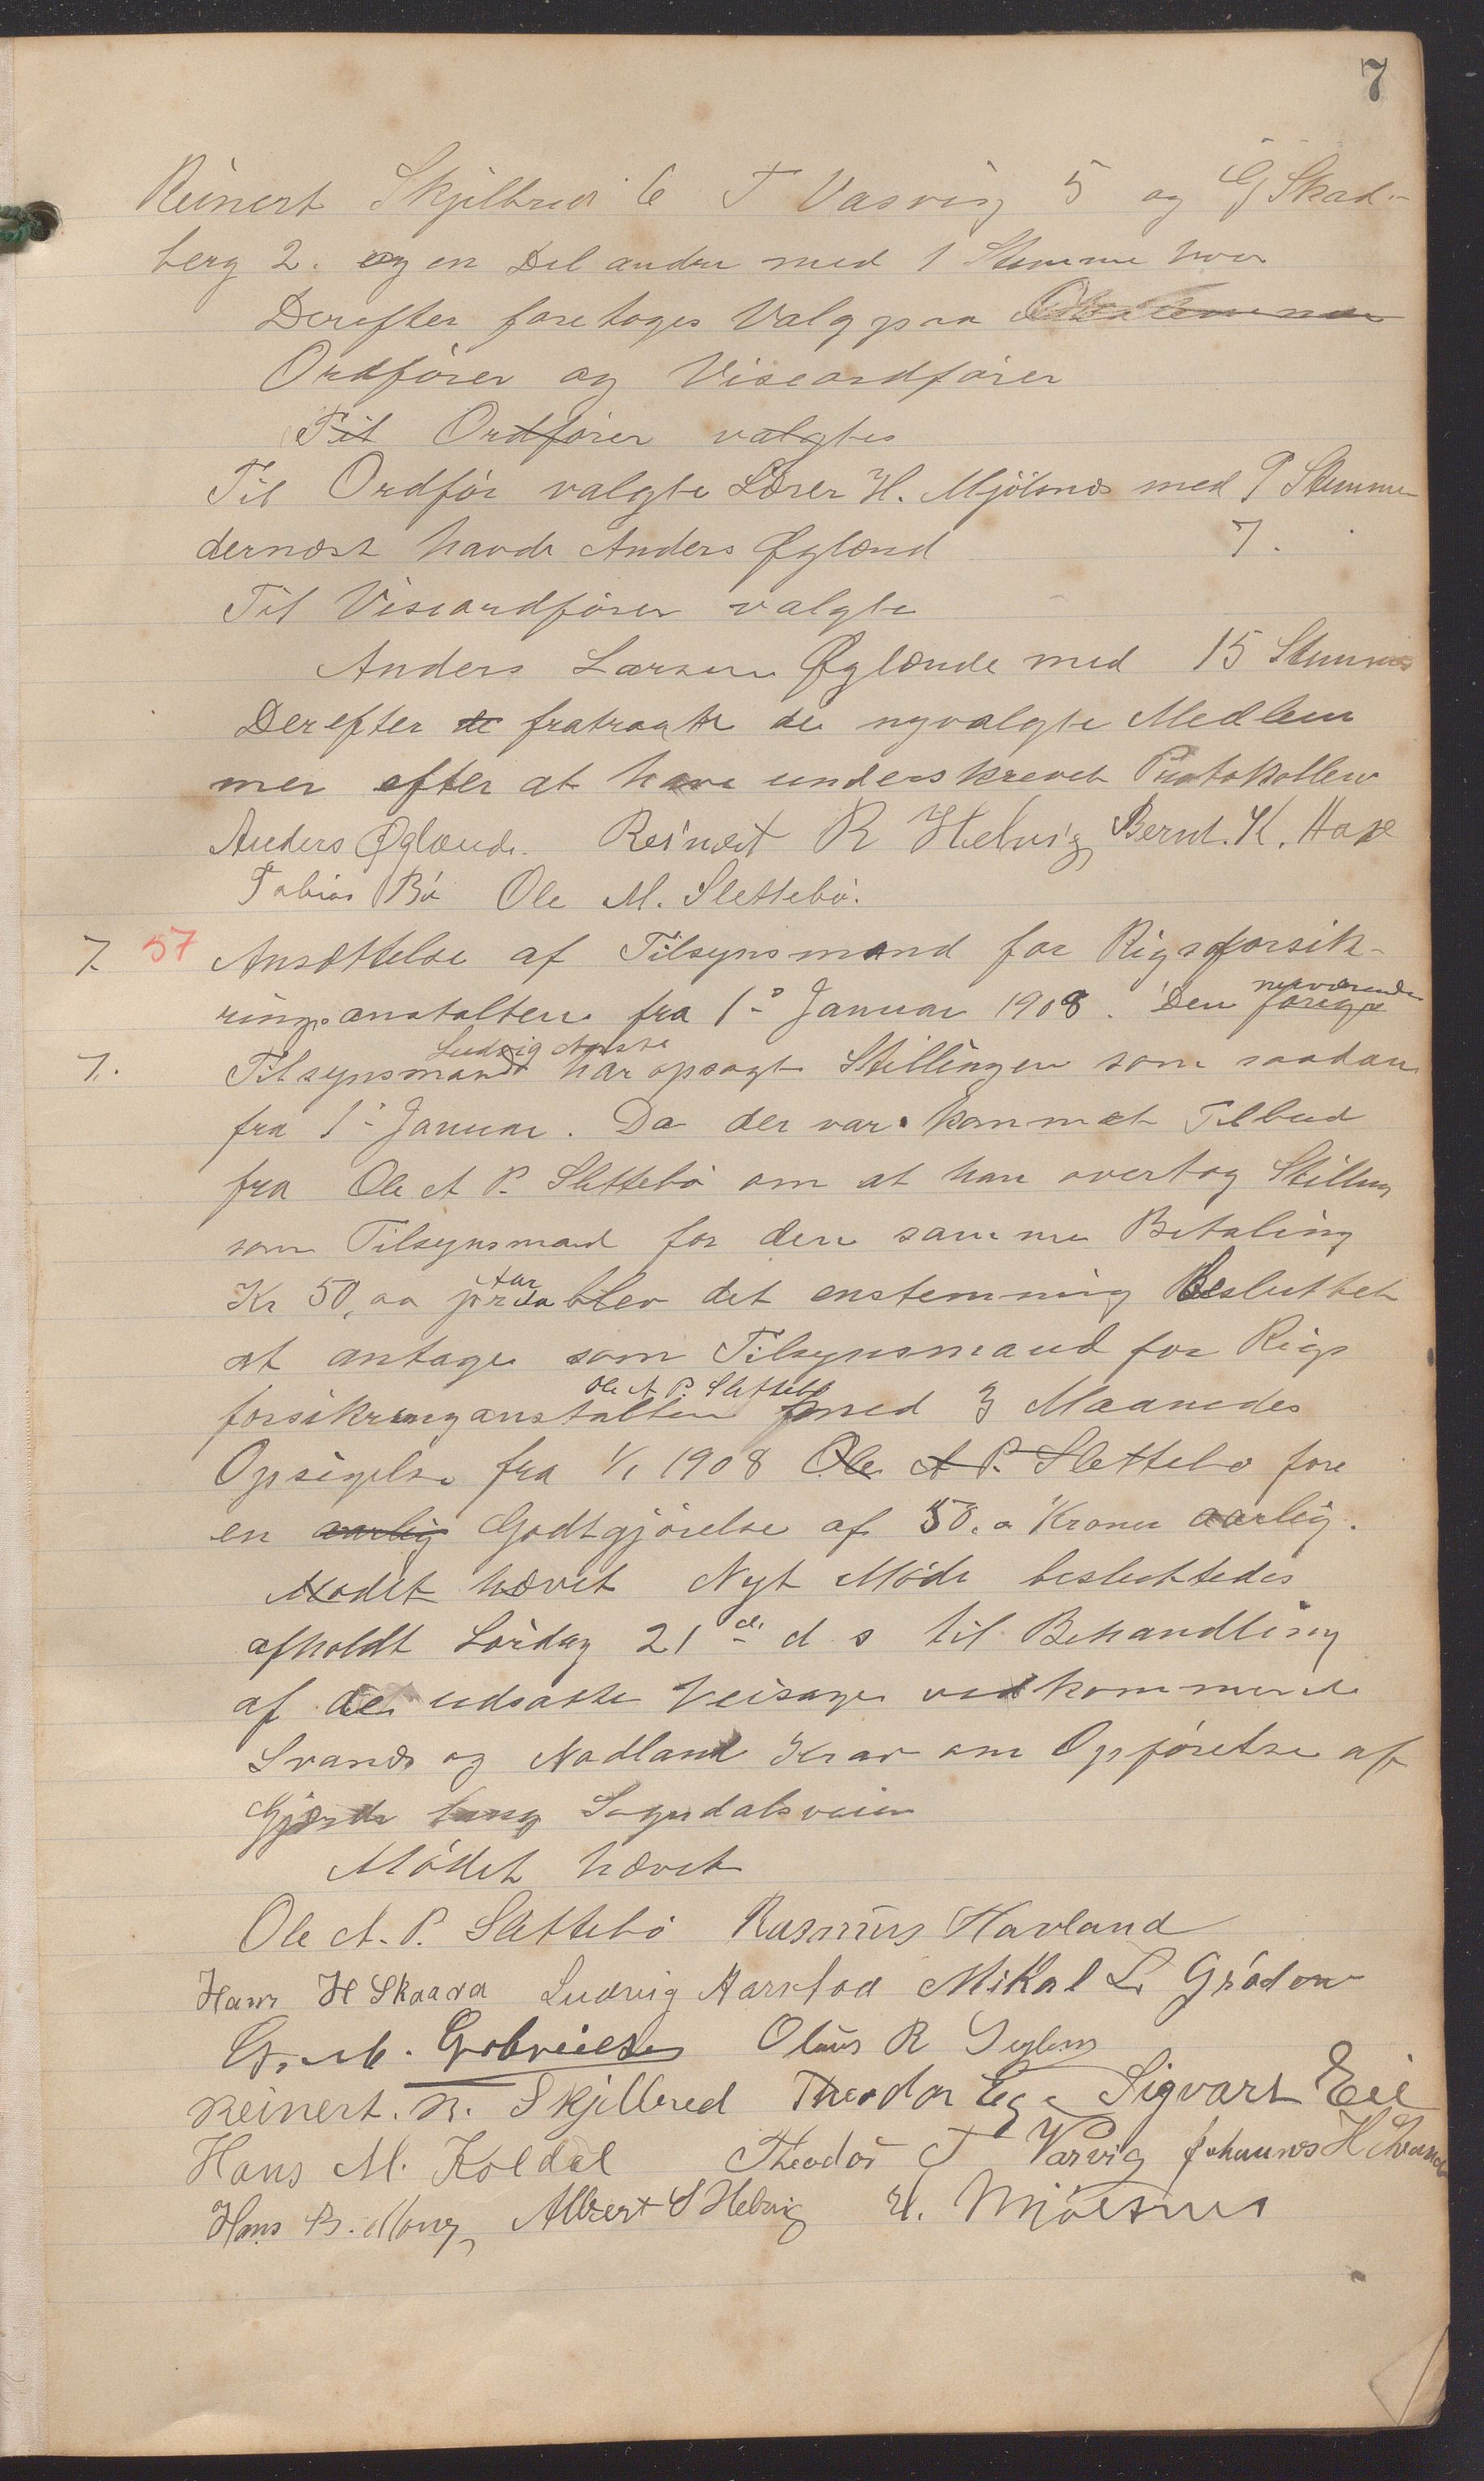 7
Reinert Skjelbred 6 T Vasvig 5 og G Skad-
berg 2. og en Del andre med 1 Stemme hver
Derefter foretoges Valg paa
Ordfører og Viseordfører
Til Ordfører valgtes
Til Ordfør valgte Lærer H. Mjölsnes med 9 Stemmer
dernæst havde Anders Øglænd 7.
Til Viseordfører valgte
Anders Larsen Øglænde med 15 Stemmer
Derefter de fratraatte de nyvalgte Medlem
mer efter at have underskrevet Protokollen
Anders Øglænde. Reinert R Helvig Bernt. K.
Tobias Bö Ole M. Slettebö.
7. 57 Ansættelse af Tilsynsmand for Rigsforsik-
nuværende
ringsanstalten fra 1ᵒ Januar 1908. Den forige
Ludvig
7. Tilsynsmand har opsagt Stillingen som saadan
fra 1ᵒ Januar. Da der var kommet Tilbud
fra Ole A P. Slettebö om at han overtog Stilling
som Tilsynsmand for den samme Betaling
Aar
Kr 50,00 pr da blev det enstemmig Besluttet
at antage som Tilsynsmand for Rigs
Ole A P. Slettebö
forsikringanstalten med 3 Maaneders
Opsigelse fra 1/1 1908 Ole A P. Slettebo fore
en aarlig Godtgjörelse af 50.0 Kroner aarlig.
Modet hævet Nyt Möde besluttedes
afholdt Lördag 21de d s til Behandling
af de udsatte Veisager vedkommende
Svanes og Nodland Krav om Opförelse af
Gjærde lang Sogndalsveien
Mödet hævet
Ole A. P. Slettebö Rasmus Havland
Hans H Skaara Ludvig Aarstad Mikal L. Grödem
G. M. Gabrielsen Olaus R
Reinert. R. Skjelbred Theodor Ege Sigvart Eie
Hans M. Koldal Theodor T Varvig Johannes H
Hans B. Mong Albert S Helvig H. Mjölsnes